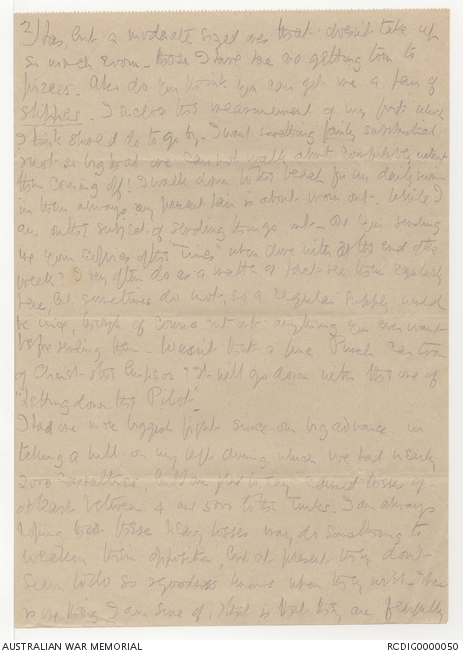 3/ but a moderate sized one that doesn't take up
so much room - those I have are so getting torn to
pieces. Also do you think you can get me a pair of
slippers. I enclose the measurement of my foot which
I think should do to go by. I want something fairly substantial
& not so big that one cannot walk about comfortably without
them coming off! I walk down to the beach for my daily swim
in them always & my present pair is about worn out. While I
am on the subject of sending things out - Do you sending
me your copies of the "Times" when done with at the end of the
week? I very often do as a matter of fact see them regularly
here, but sometimes do not, so a regular supply would
be nice, though of course cut out anything you ever want
before sending them - Wasn't that a fine Punch cartoon
of Christ & the Emperor? It will go down with the one of
"Letting down the Pilot".
I had one more biggish fight since our big advance in
taking a hill on my left during which we had nearly
2000 casualties, but I am glad to say caused losses of
at least between 4 and 5000 to the Turks. I am always
hoping that these heavy losses may do something to
weaken their opposition, but at present they don't
seem to do so & goodness knows when they will - There
is one thing I am sure of, that is that they are fearfully
AUSTRALIAN WAR MEMORIAL
RCDIG0000050